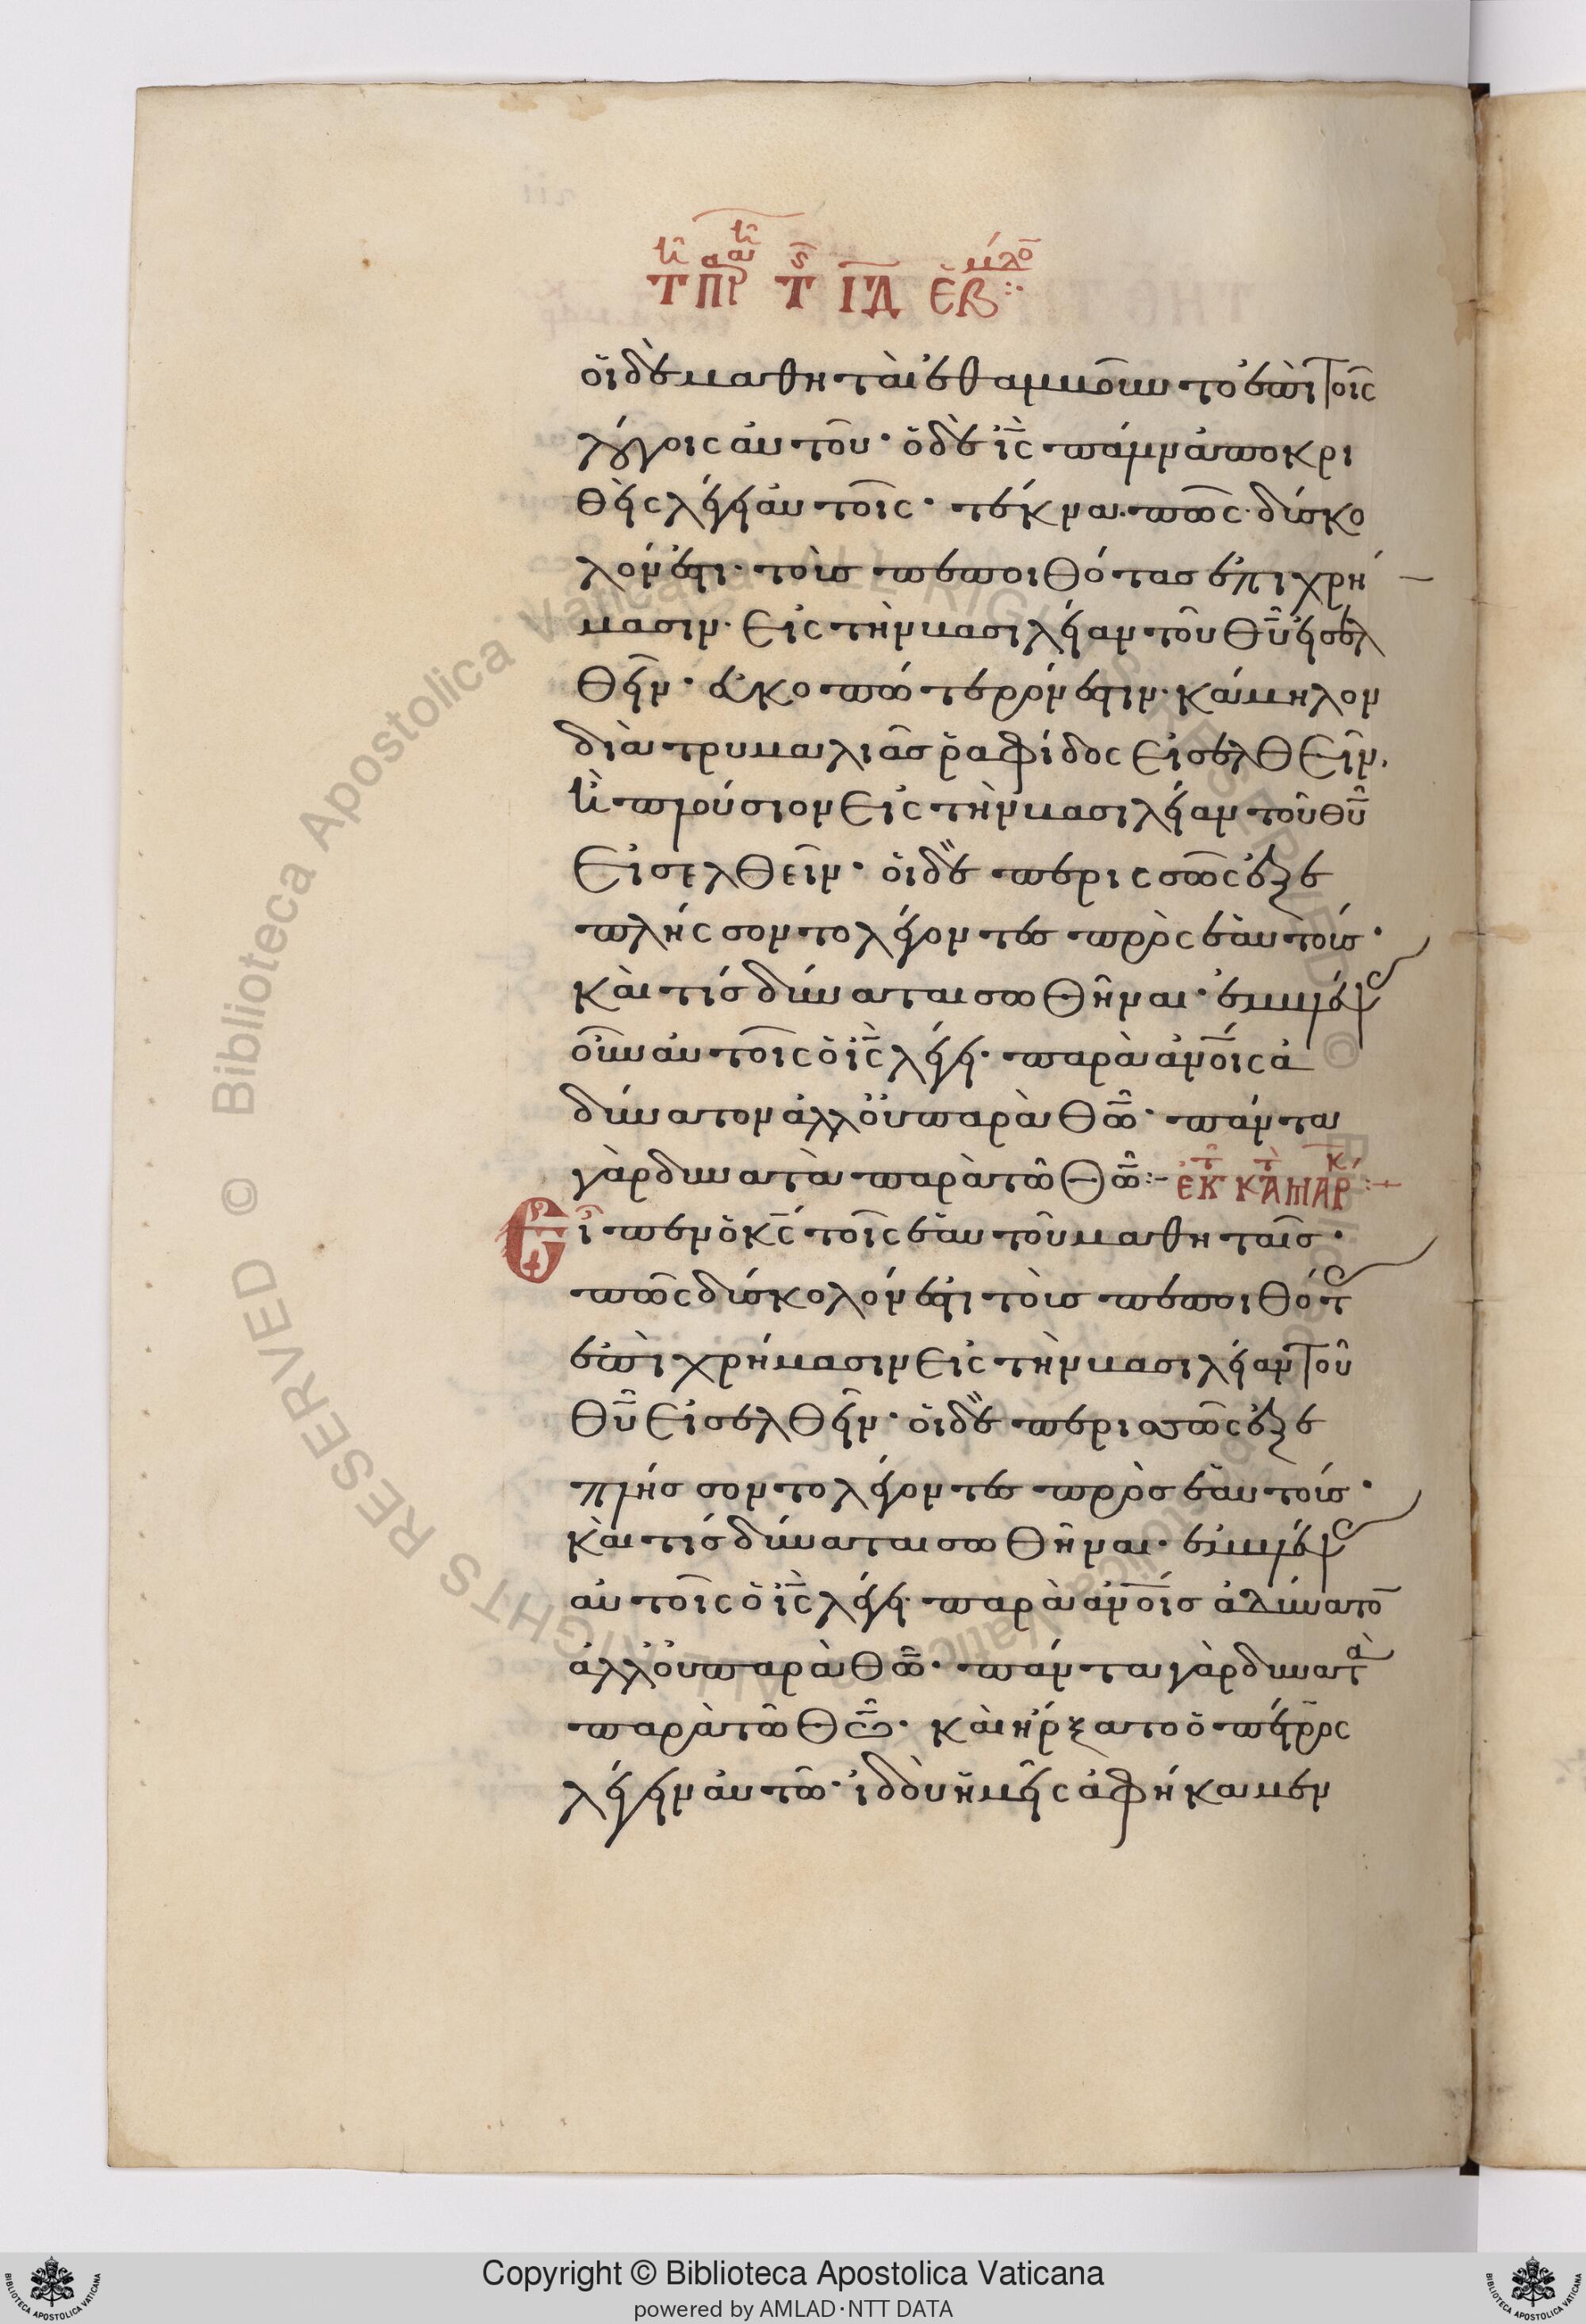 τῇ παρασκ τῆς ιδ ἑβδομάδ
οἱ δὲ μαθηταὶ ἐθαμβοῦντο ἐπὶ τοῖς
λόγοις αὐτοῦ· ὁ δὲ ις̅ πάλιν ἀποκρι
θεὶς λέγει αὐτοῖς· τέκνα· πῶς δύσκο
λόν ἐστι· τοὺς πεποιθότας ἐπι χρή
μασιν· εἰς τὴν βασιλείαν τοῦ θυ̅ εἰσελ
θεῖν· εὐκοπώτερον ἐστιν· κάμηλον
διὰ τρυμαλιᾶς ῥαφίδος εἰσελθεῖν,
ἢ πλούσιον εἰς τὴν βασιλείαν τοῦ θυ̅
εἰσελθεῖν· οἱ δὲ περισσῶς ἐξε
πλήσσοντο λέγοντες πρὸς ἑαυτούς·
καὶ τίς δύναται σωθῆναι· ἐμβλέψας
οὖν αὐτοῖς ὁ ις̅ λέγει· παρὰ ἀνοις̅ ἀ
δύνατον ἀλλ οὐ παρὰ θω̅· πάντα
γὰρ δυνατὰ παρὰ τῶ θω̅:- ἐκ τοῦ κατὰ μάρκ:-
Εἶπεν ὁ κς̅ τοῖς ἑαυτοῦ μαθηταῖς·
πῶς δύσκολόν ἐστι τοὺς πεποιθότας
ἐπὶ χρήμασιν εἰς τὴν βασιλείαν τοῦ
θυ̅ εἰσελθεῖν· οἱ δὲ περισσῶς ἐξε
πλήσσοντο λέγοντες πρὸς ἑαυτούς·
καὶ τίς δύναται σωθῆναι· ἐμβλέψας
αὐτοῖς ὁ ις̅ λέγει· παρὰ ἀνοις̅ ἀδύνατον
ἀλλ οὐ παρὰ θω̅· πάντα γὰρ δυνατὰ
παρὰ τῶ θω̅· καὶ ἤρξατο ὁ πέτρος
λέγειν αὐτῶ· ἰδοὺ ἡμεῖς ἀφήκαμεν
© Biblioteca Apostolica Vaticana ALL RIGHTS RESERVED
Copyright © Biblioteca Apostolica Vaticana
powered by AMLAD·NTT DATA
BIBLIOTECA APOSTOLICA VATICANA
BIBLIOTECA APOSTOLICA VATICANA